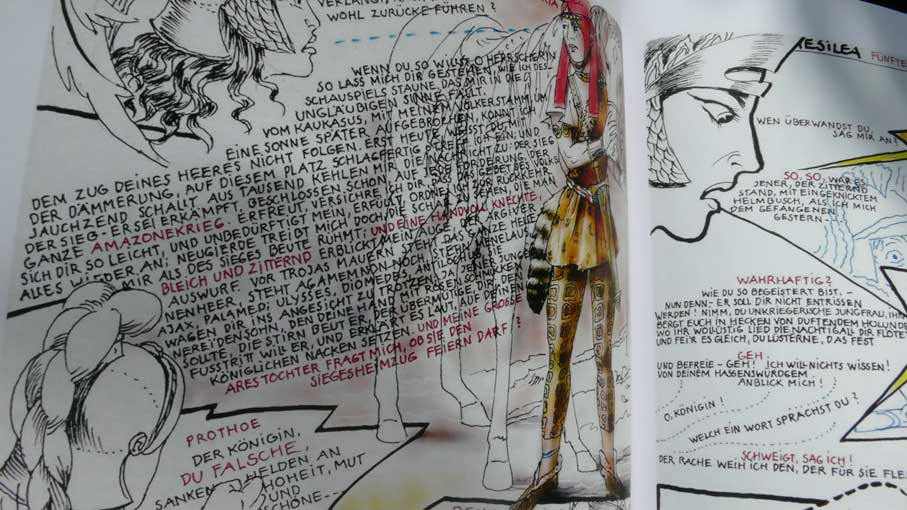 VERLANGT,
WOHL ZURÜCKE FÜHREN?
WENN DU SO WILLST, O HERRSCHERIN,
SO LASS MICH DIR GESTEHEN, WIE ICH DES
SCHAUSPIELS STAUNE, DAS MIR IN DIE
UNGLÄUBIGEN SINNE FÄLLT.
VOM KAUKASUS, MIT MEINEM VÖLKERSTAMM UM
EINE SONNE SPÄTER AUFGEBROCHEN, KONNT ICH
DEM ZUG DEINES HEERES NICHT FOLGEN. ERST HEUTE, WEISST DU, MIT
DER DÄMMERUNG, AUF DIESEM PLATZ SCHLAGFERTIG TREFF ICH EIN; UND
JAUCHZEND SCHALLT AUS TAUSEND KEHLEN MIR DIE NACHRICHT ZU: DER SIEG
DER SIEG - ER SEI ERKÄMPFT, GESCHLOSSEN SCHON, AUF JEDE FORDERUNG, DER
GANZE AMAZONEKRIEG. ERFREUT, VERSICHR ICH DICH, DASS DAS GEBET DES VOLKS
SICH DIR SO LEICHT, UND UNBEDÜRFTIGT MEIN, ERFÜLLT, ORDNE ICH ZUR RÜCKKEHR
ALLES WIEDER AN; NEUGIERDE TREIBT MICH DOCH, DIE SCHAR ZU SEHEN, DIE MAN
MIR ALS DES SIEGES BEUTE RÜHMT; UND EINE HANDVOLL KNECHTE,
BLEICH UND ZITTERND ERBLICKT MEIN AUGE, DER ARGIVER
AUSWURF. VOR TROJAS MAUERN STEHT DAS STOLZE HELLENENHEER,
STEHT AGAMEMNON NOCH, STEHT MENELAUS,
AJAX, PALAMED, ULYSSES, DIOMEDES, ANTILOCHUS, SIE
WAGEN DIR INS ANGESICHT ZU TROTZEN: JA JENER JUNGE
NEREIDENSOHN, DEN DEINE HAND MIT ROSEN SCHMÜCKEN
SOLLTE, DIE STIRN BEUT ER, DER ÜBERMÜTGE, DIR; DEN
FUSSTRITT WILL ER, UND ERKLÄRT ES LAUT, AUF DEINEN
KÖNIGLICHEN NACKEN SETZEN: UND MEINE GROSSE
ARES TOCHTER FRAGT MICH, OB SIE DEN
SIEGESHEIMZUG FEIERN DARF?
PROTHOE
DER KÖNIGIN,
DU FALSCHE,
SANKEN HELDEN AN
HOHEIT, MUT
UND
SCHÖNE---
ESILEA FÜNFTER
WEN ÜBERWANDST DU,
SAG MIR AN?
SO, SO, WAR ES
JENER, DER ZITTERND
STAND, MIT EINGEKNICKTEM
HELMBUSCH, ALS ICH MICH
DEM GEFANGENEN
GESTERN -
WAHRHAFTIG?
WIE DU SO BEGEISTERT BIST. -
NUN DENN - ER SOLL DIR NICHT ENTRISSEN
WERDEN! NIMM, DU UNKRIEGERISCHE JUNGFRAU, IHN
BERGT EUCH IN HECKEN VON DUFTENDEM HOLUNDER
WO IHR WOLLÜSTIG LIED DIE NACHTIGALL DIR FLÖTET
UND FEI'R ES GLEICH, DU LÜSTERNE, DAS FEST
GEH
UND BEFREIE - GEH! ICH WILL NICHTS WISSEN!
VON DEINEM HASSENSWÜRDGEM
ANBLICK MICH!
O, KÖNIGIN!
WELCH EIN WORT SPRACHST DU?
SCHWEIGT, SAG ICH!
DER RACHE WEIH ICH DEN, DER FÜR SIE FLE